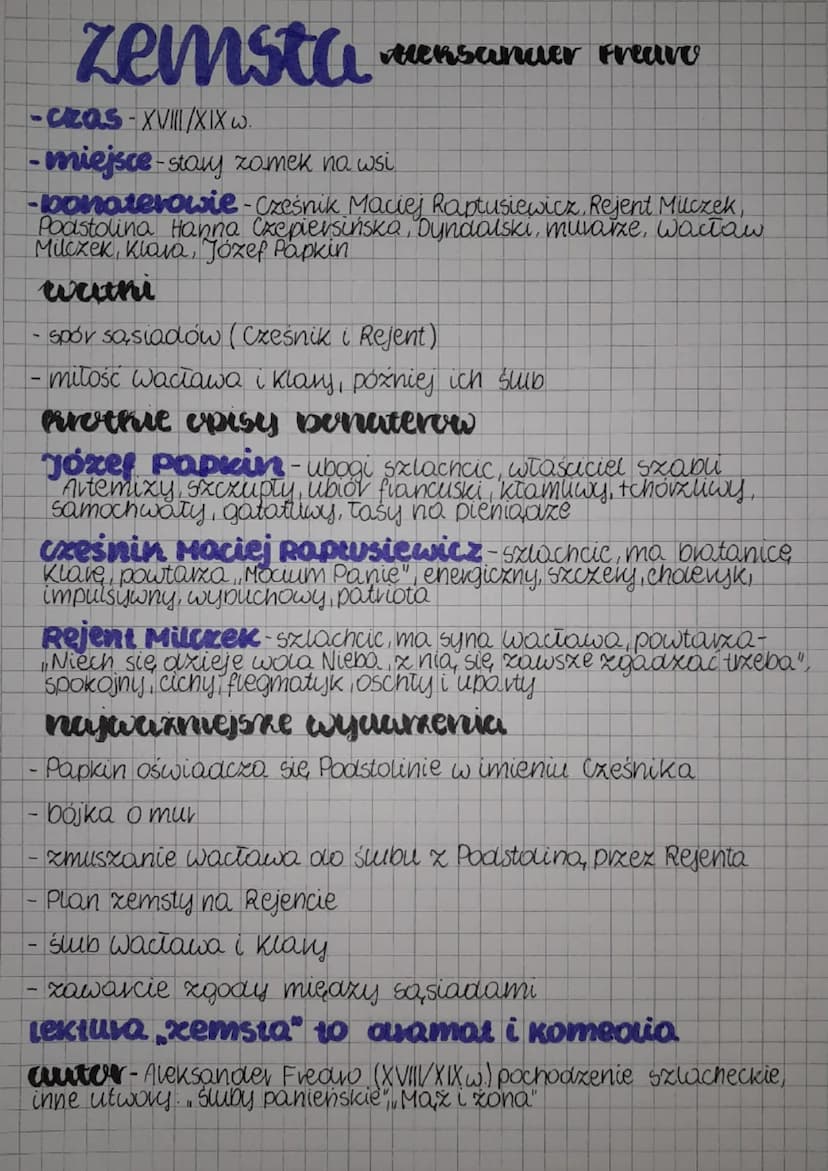 Zemsta Aleksander Fredro
- czas - XVIII/XIX w.
- miejsce - stary zamek na wsi
- bohaterowie - Cześnik Maciej Raptusiewicz, Rejent Milczek,
Podstolina Hanna Czepiersińska, Dyndalski, murarze, Wacław
Milczek, Klara, Józef Papkin
wątki
- spór sąsiadów (Cześnik i Rejent)
- miłość Wacława i Klary, później ich ślub
krótkie opisy bohaterów
Józef Papkin - ubogi szlachcic, właściciel szabli
Artemizy, szczupły, ubiór francuski, kłamliwy, tchórzliwy,
samochwały, gatatliwy, łasy na pieniądze
Cześnin Maciej Raptusiewicz - szlachcic, ma bratanicę
Klarę, powtarza „Mocium Panie", energiczny, szczery, choleryk,
impulsywny, wybuchowy, patriota
Rejent Milczek - szlachcic, ma syna Wacława, powtarza -
„Niech się dzieje wola Nieba, z nią się zawsze zgadzać trzeba",
spokojny, cichy, flegmatyk, oschły i uparty
najważniejsze wydarzenia
- Papkin oświadcza się Podstolinie w imieniu Cześnika
- bójka o mur
- zmuszanie Wacława do ślubu z Podstoliną przez Rejenta
- Plan zemsty na Rejencie
- ślub Wacława i Klary
- zawarcie zgody między sąsiadami
lektura „zemsta" to dramat i komedia
autor - Aleksander Fredro (XVIII/XIX w.) pochodzenie szlacheckie,
inne utwory: „Śluby panieńskie", „Mąż i żona"